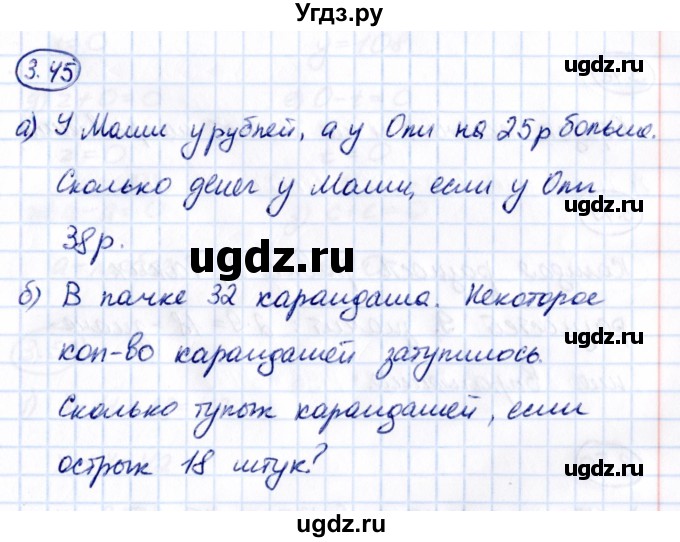 Угдз.ру
3.45
ugdz.ru
а) У Маши y рублей, а у Оли на 25р больше.
Сколько денег у Маши, если у Оли
38р.
ugdz.ru
ugdz.ru
б) В пачке 32 карандаша. Некоторое
кол-во карандашей затупилось.
Сколько тупых карандашей, если
острых 18 штук?
ugdz.ru
ugdz.ru